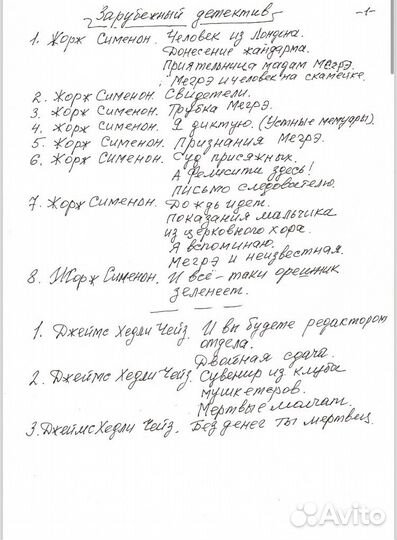 Зарубежный детектив
-1-
1. Жорж Сименон. Человек из Лондона.
Донесение жандарма.
Приятельница мадам Мегрэ.
Мегрэ и человек на скамейке.
2. Жорж Сименон. Свидетели.
3. Жорж Сименон. Трубка Мегрэ.
4. Жорж Сименон. Я диктую. (Устные мемуары).
5. Жорж Сименон. Признания Мегрэ.
6. Жорж Сименон. Суд присяжных.
А Фелисити здесь!
Письмо следователю.
7. Жорж Сименон. Дождь идет.
Показания мальчика
из церковного хора.
Я вспоминаю.
Мегрэ и неизвестная.
8. Жорж Сименон. И всё-таки орешник
зеленеет.
1. Джеймс Хедли Чейз. И вы будете редактором
отдела.
Двойная сдача.
2. Джеймс Хедли Чейз. Сувенир из клуба
мушкетеров.
Мертвые молчат.
3. Джеймс Хедли Чейз. Без денег ты мертвец.
Avito